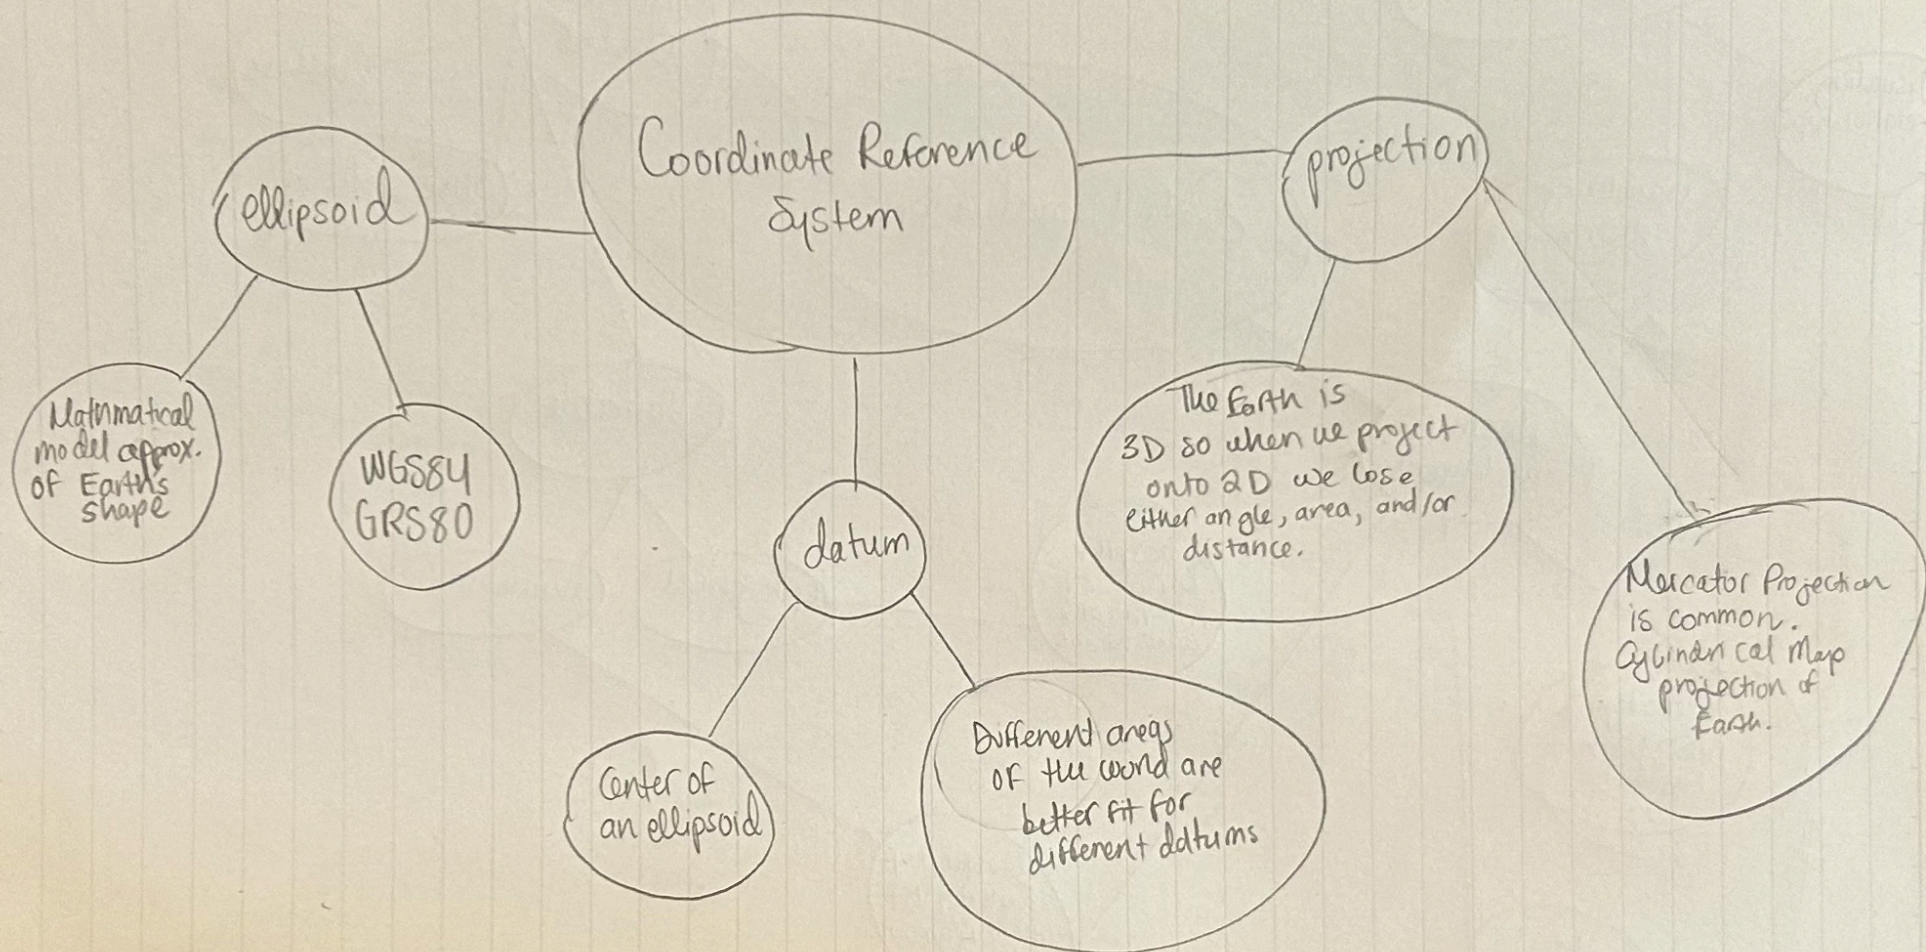 Coordinate Reference
System
ellipsoid
projection
Mathmatical
model approx.
of Earth's
shape
WGS84
GRS80
datum
Center of
an ellipsoid
Different areas
of the world are
better fit for
different datums
The Earth is
3D so when we project
onto 2D we lose
either angle, area, and/or
distance.
Mercator Projection
is common.
Cylindrical Map
projection of
Earth.